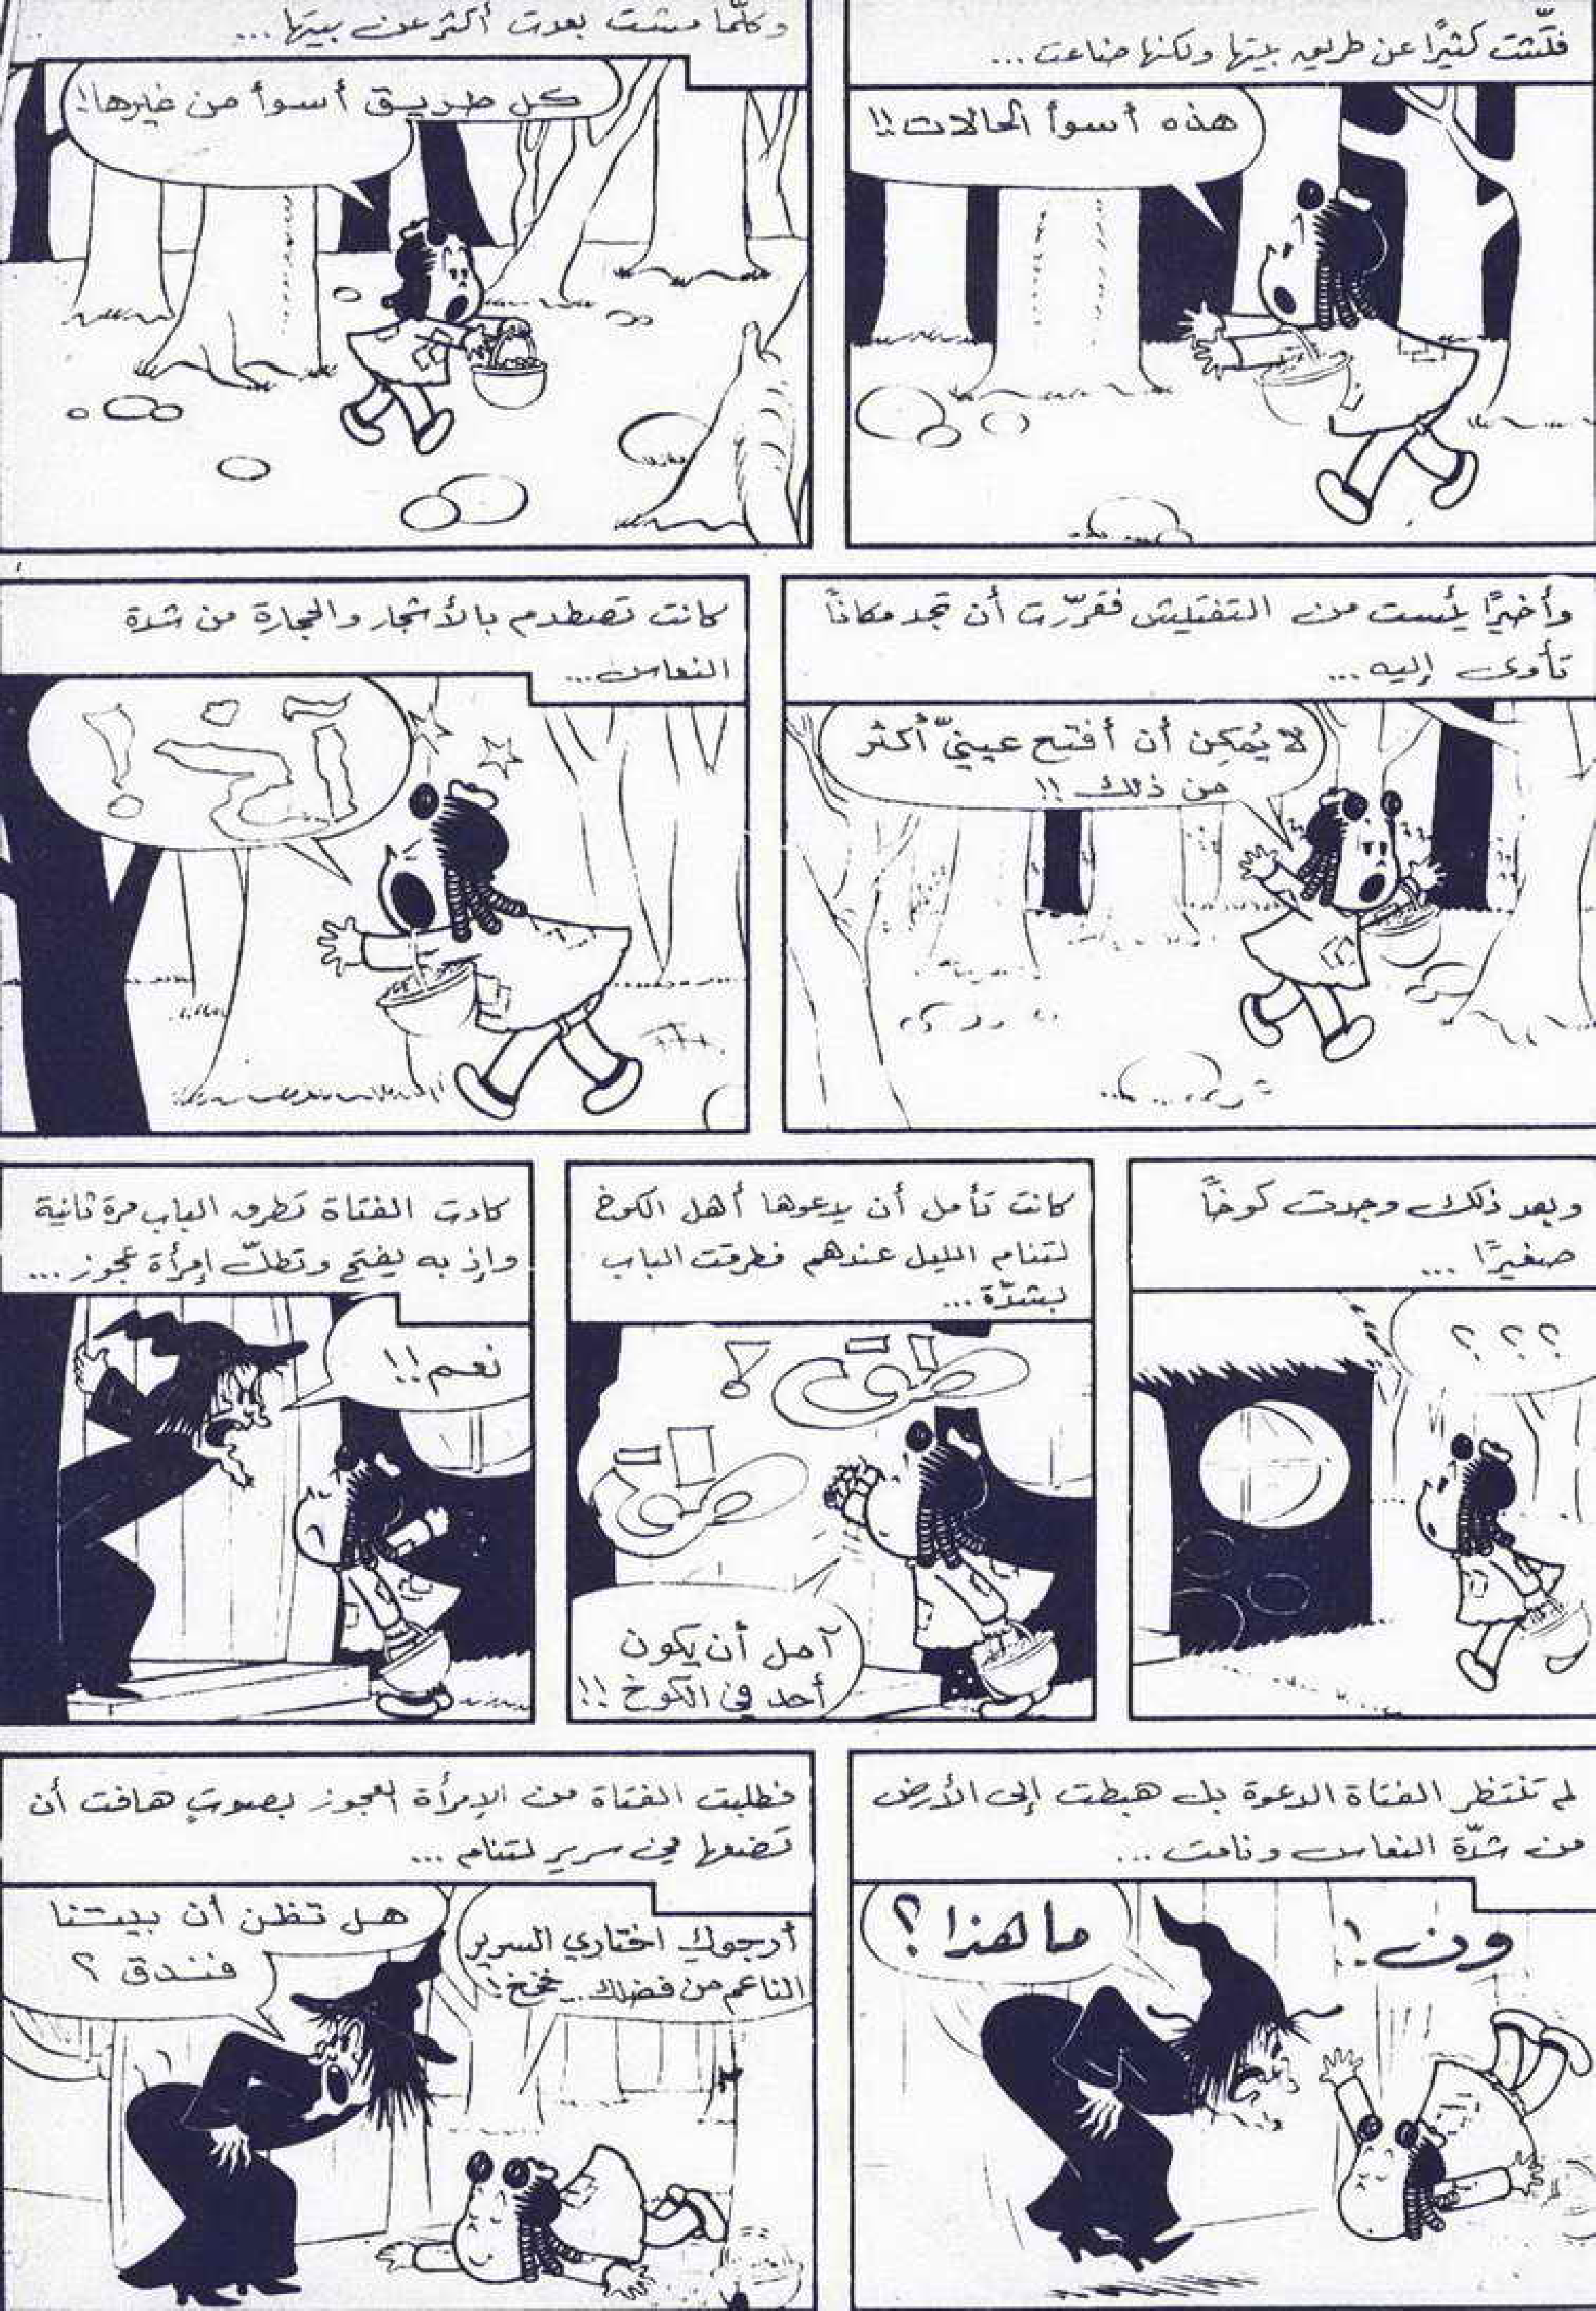 فتّشت كثيرًا عن طريق بيتها ولكنها ضاعت...
هذه أسوأ الحالات!!
وكلّما مشت بعدت أكثر عن بيتها...
كل طريق أسوأ من غيرها!
وأخيرًا يئست من التفتيش فقرّرت أن تجد مكانًا
تأوى إليه...
لا يُمكِن أن أفتح عينيّ أكثر
من ذلك!!
كانت تصطدم بالأشجار والحجارة من شدة
النعاس...
آخ!
وبعد ذلك وجدت كوخًا
صغيرًا...
؟ ؟ ؟
كانت تأمل أن يدعوها أهل الكوخ
لتنام الليل عندهم فطرقت الباب
بشدّة...
طق!
طق
آمل أن يكون
أحد في الكوخ!!
كادت الفتاة تطرق الباب مرة ثانية
وإذ به يفتح وتطلّ إمرأة عجوز...
نعم!!
لم تنتظر الفتاة الدعوة بل هبطت إلى الأرض
من شدّة النعاس ونامت...
ون!
ما هذا؟
فطلبت الفتاة من الإمرأة العجوز بصوتٍ هافت أن
تضعها في سرير لتنام...
أرجوك اختاري السرير
الناعم من فضلك.. خخخ!
هل تظن أن بيتنا
فندق؟